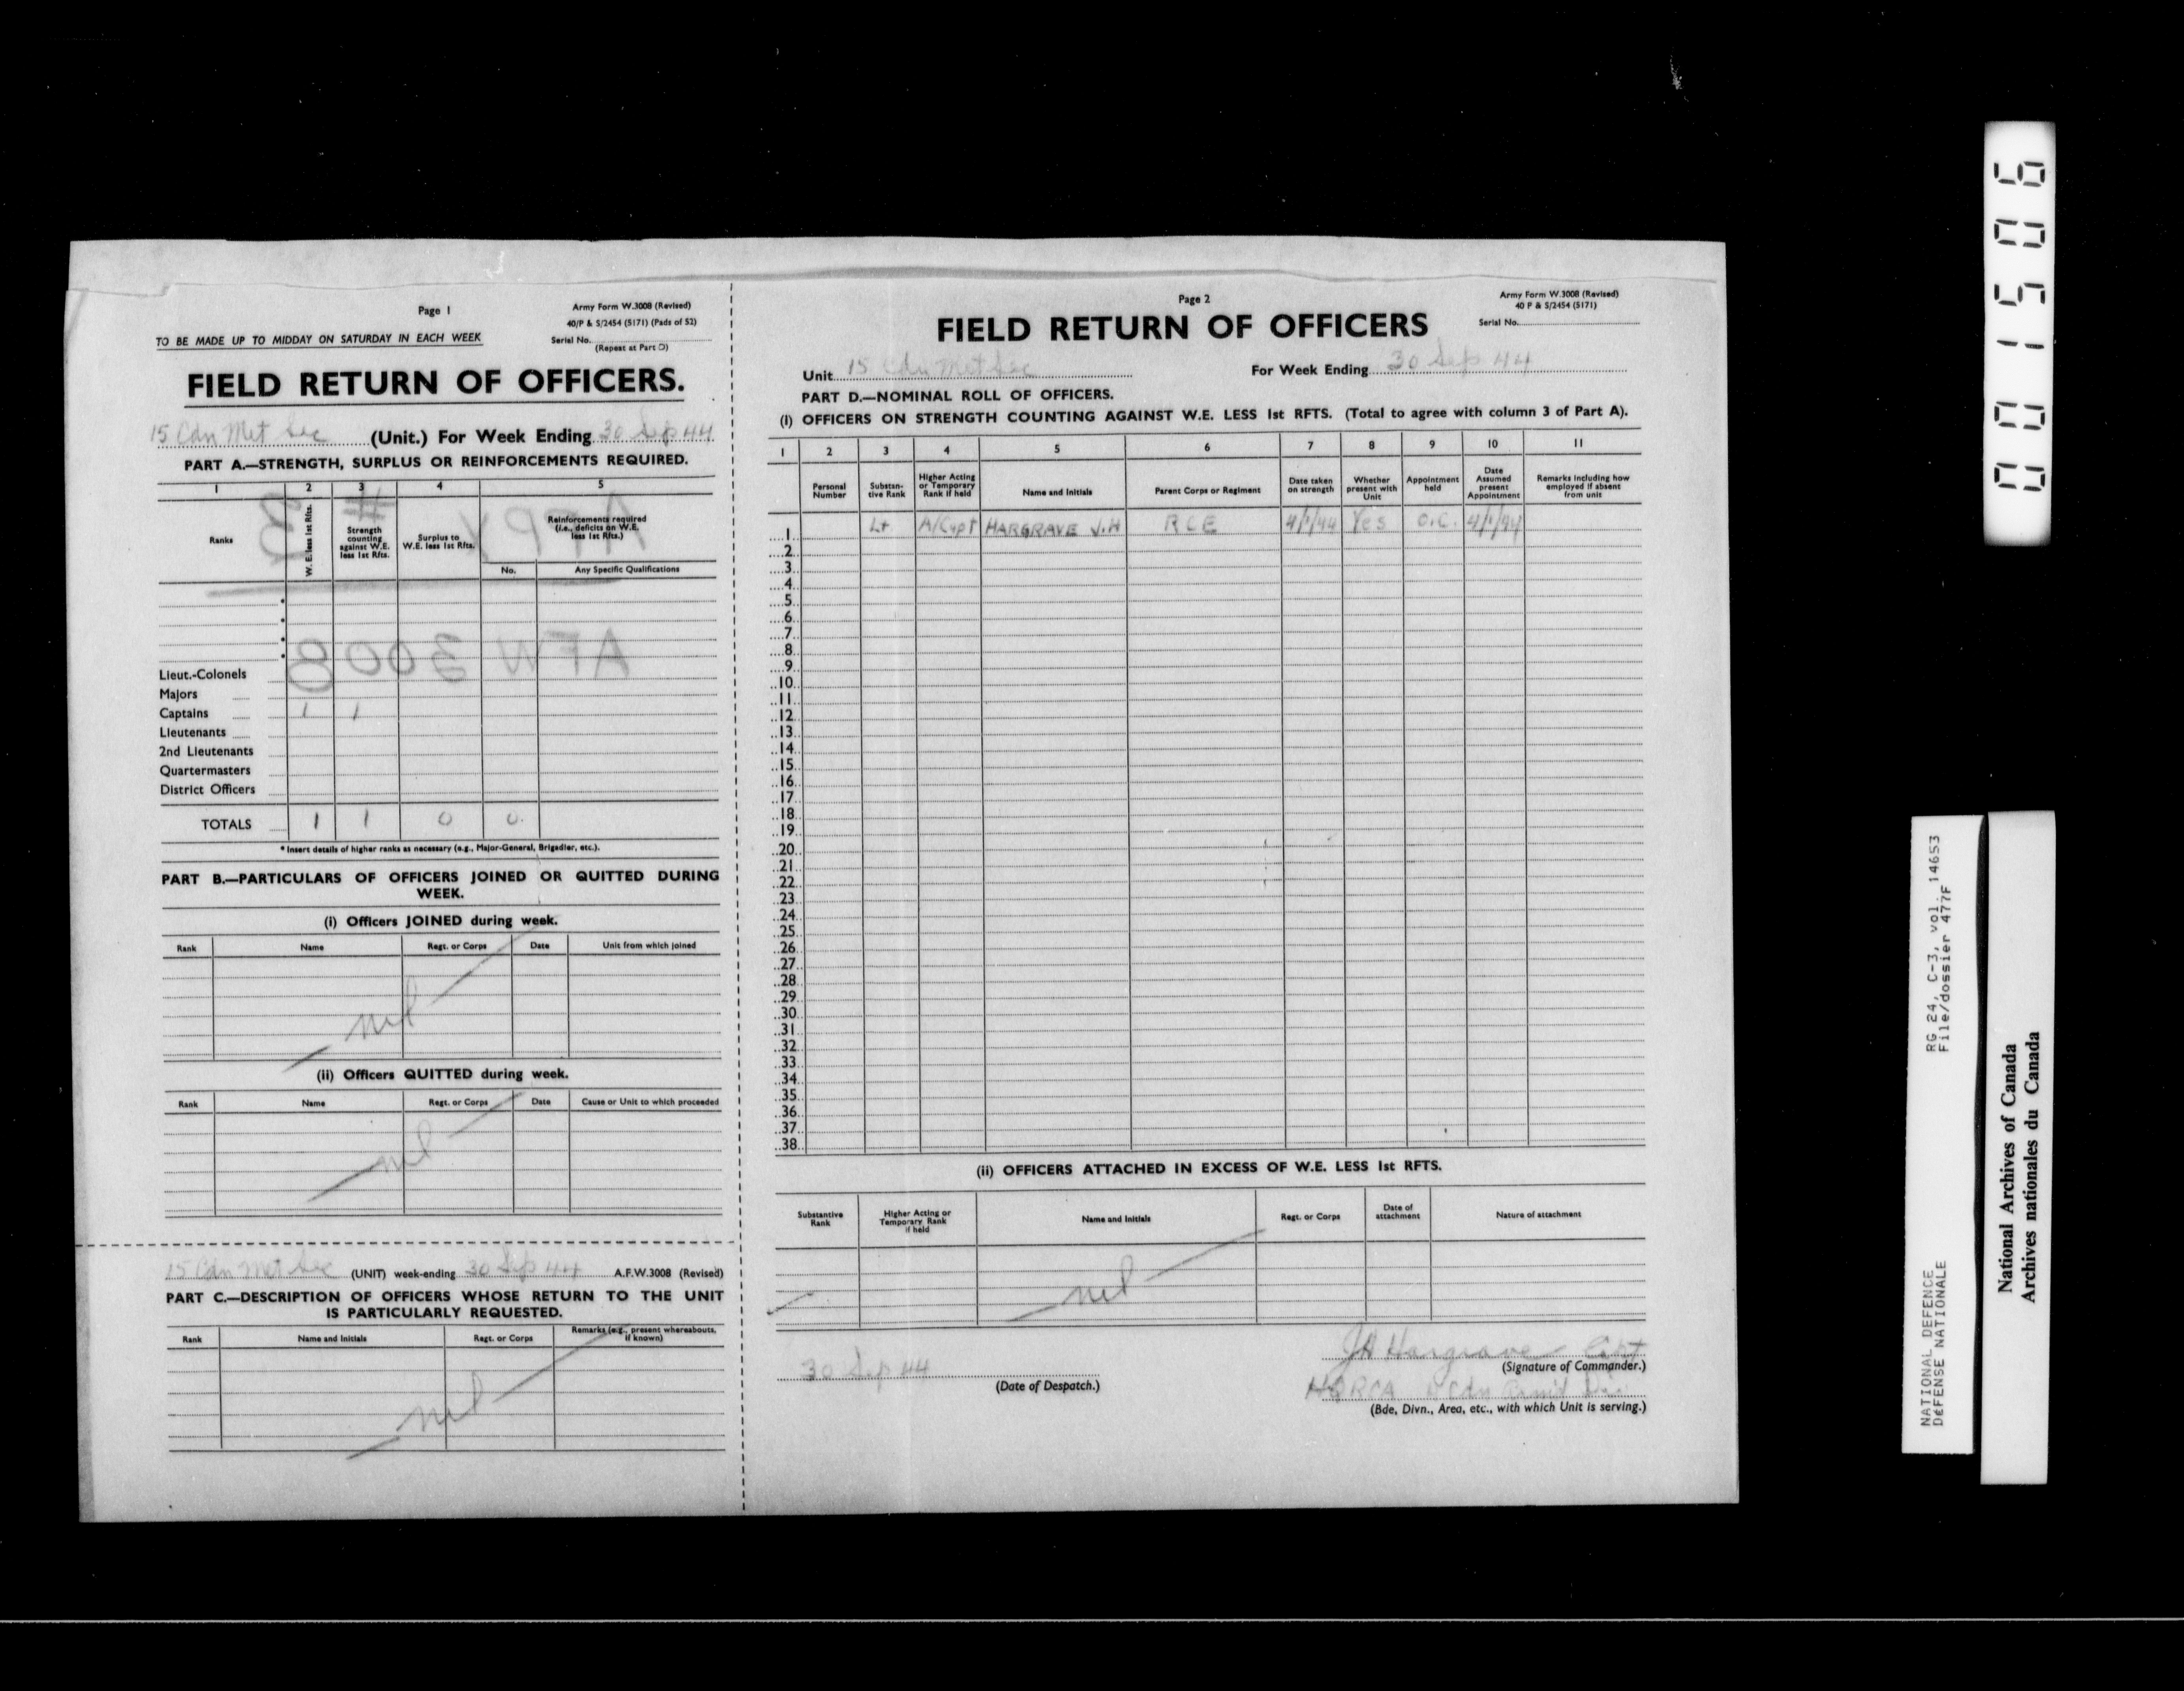 Page 1
Army Form W.3008 (Revised)
40/P & S/2454 (5171) (Pads of 52)
TO BE MADE UP TO MIDDAY ON SATURDAY IN EACH WEEK
Serial No.
(Repeat at Part D)
FIELD RETURN OF OFFICERS.
15 Cdn Met Sec (Unit.) For Week Ending 30 Sep 44
PART A.—STRENGTH, SURPLUS OR REINFORCEMENTS REQUIRED.
1 2 3 4 5
Ranks
W. E. less 1st Rfts.
Strength counting against W.E. less 1st Rfts.
Surplus to W.E. less 1st Rfts.
Reinforcements required (i.e., deficits on W.E. less 1st Rfts.)
No.
Any Specific Qualifications
APPX # 3
AFW 3008
Lieut.-Colonels
Majors
Captains 1 1
Lieutenants
2nd Lieutenants
Quartermasters
District Officers
TOTALS 1 1 0 0
* Insert details of higher ranks as necessary (e.g., Major-General, Brigadier, etc.).
PART B.—PARTICULARS OF OFFICERS JOINED OR QUITTED DURING
WEEK.
(i) Officers JOINED during week.
Rank Name Regt. or Corps Date Unit from which joined
nil
(ii) Officers QUITTED during week.
Rank Name Regt. or Corps Date Cause or Unit to which proceeded
nil
15 Cdn Met Sec (UNIT) week-ending 30 Sep 44 A.F.W.3008 (Revised)
PART C.—DESCRIPTION OF OFFICERS WHOSE RETURN TO THE UNIT
IS PARTICULARLY REQUESTED.
Rank Name and Initials Regt. or Corps Remarks (e.g., present whereabouts, if known)
nil
Page 2
Army Form W.3008 (Revised)
40 P & S/2454 (5171)
Serial No.
FIELD RETURN OF OFFICERS
Unit 15 Cdn Met Sec For Week Ending 30 Sep 44
PART D.—NOMINAL ROLL OF OFFICERS.
(i) OFFICERS ON STRENGTH COUNTING AGAINST W.E. LESS 1st RFTS. (Total to agree with column 3 of Part A).
1 2 3 4 5 6 7 8 9 10 11
Personal Number
Substantive Rank
Higher Acting or Temporary Rank if held
Name and Initials
Parent Corps or Regiment
Date taken on strength
Whether present with Unit
Appointment held
Date Assumed present Appointment
Remarks including how employed if absent from unit
1 Lt A/Capt HARGRAVE J.H RCE 4/1/44 Yes O.C. 4/1/44
2
3
4
5
6
7
8
9
10
11
12
13
14
15
16
17
18
19
20
21
22
23
24
25
26
27
28
29
30
31
32
33
34
35
36
37
38
(ii) OFFICERS ATTACHED IN EXCESS OF W.E. LESS 1st RFTS.
Substantive Rank
Higher Acting or Temporary Rank if held
Name and Initials
Regt. or Corps
Date of attachment
Nature of attachment
nil
JH Hargrave Capt
(Signature of Commander.)
30 Sep 44
(Date of Despatch.)
HQ RCA Cdn Armd Div
(Bde, Divn., Area, etc., with which Unit is serving.)
001506
NATIONAL DEFENCE RG 24, C-3, vol. 14653
DéFENSE NATIONALE File/dossier 477F
National Archives of Canada
Archives nationales du Canada